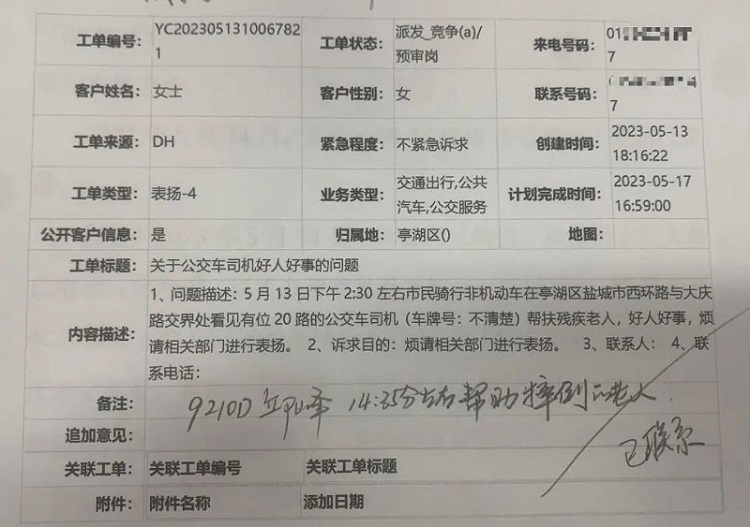 工单编号: YC2023051310067821 工单状态: 派发_竞争(a)/预审岗 来电号码: 01 7
客户姓名: 女士 客户性别: 女 联系号码: 7
工单来源: DH 紧急程度: 不紧急诉求 创建时间: 2023-05-13 18:16:22
工单类型: 表扬-4 业务类型: 交通出行,公共汽车,公交服务 计划完成时间: 2023-05-17 16:59:00
公开客户信息: 是 归属地: 亭湖区() 地图:
工单标题: 关于公交车司机好人好事的问题
内容描述: 1、问题描述：5 月 13 日下午 2:30 左右市民骑行非机动车在亭湖区盐城市西环路与大庆
路交界处看见有位 20 路的公交车司机（车牌号：不清楚）帮扶残疾老人，好人好事，烦
请相关部门进行表扬。 2、诉求目的：烦请相关部门进行表扬。 3、联系人： 4、联
系电话：
备注: 9210D 14:35分左右帮助摔倒的老人
追加意见: 已联系
关联工单: 关联工单编号 关联工单标题
附件: 附件名称 添加日期